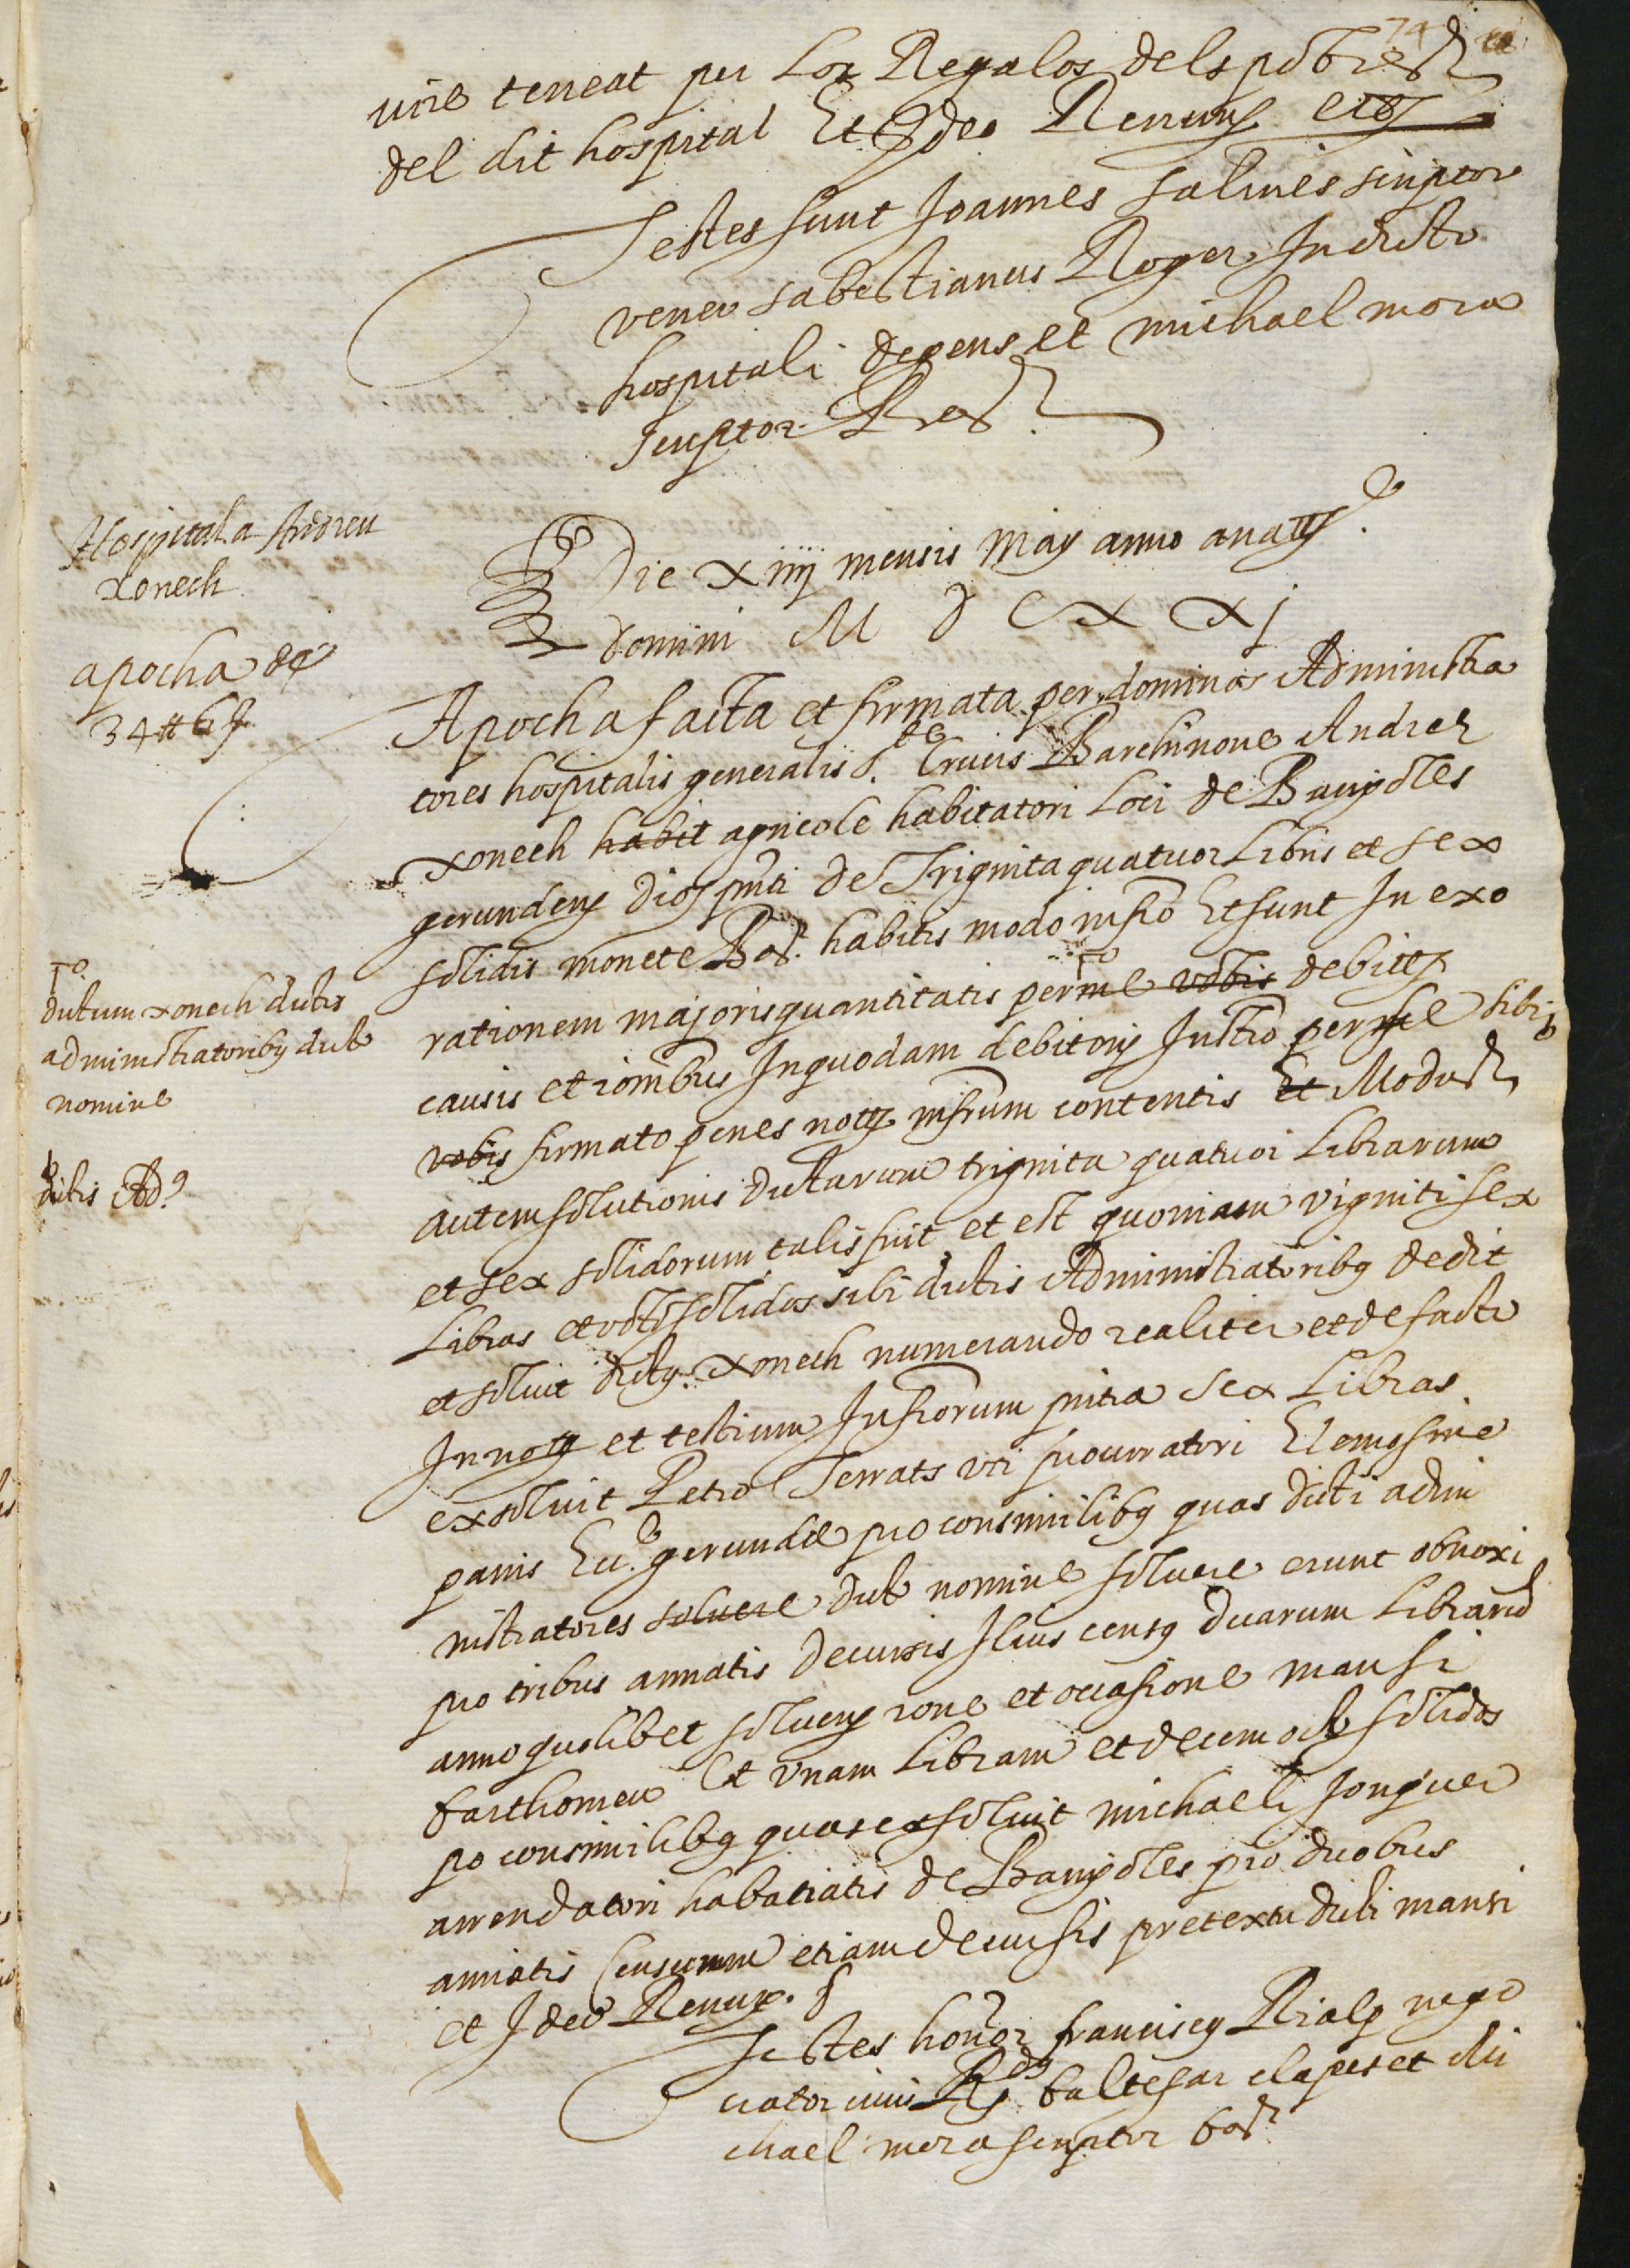 74
teneat per los Regalos dels pobres
del dit hospital Et Ideo Renuns etc
Testes sunt Joannes salines scriptor
sabestianus Roger In dicto
hospitali degens et michael mora
scriptor Bar
Hospital a Andreu
Xonech
apocha de
34 ₶ 6 s
Die xiiij mensis May anno a natte
domini M D C X X j
Apocha facta et firmata per dominos Administra
tores hospitalis generalis S. te Crucis Barchinone Andree
Xonech habit agricole habitatori loci de Banyoles
gerunden dios pnti de Trigintaquatuor Libris et sex
solidis monete Bar. habitis modo infro Et sunt In exo
rationem majoris quantitatis per me vobis debite
causis et ionibus In quodam debitorij Instro per me sibi
vobis firmato penes not infrum contentis Et Modus
autem solutionis dictarum triginta quatuor Librarum
et sex solidorum talis fuit et est quoniam viginti sex
Libras et octo solidos sibi dictis Administratoribus dedit
et solvit dictus Xonech numerando realiter et de facto
In not et testium Infrorum pntia Sex Libras
exsolvit Petro Serrats uti procuratori Elemosine
panis Ecc. gerunde pro consimilibus quas dicti admi
nistratores soluere dicto nomine soluere erunt obnoxi
pro tribus annatis decursis Ilius census duarum Librarum
anno quolibet soluens rone et occasione mansi
barthomeu Et unam Libram et decem octo solidos
pro consimilibus quas exsolvit michaeli Jonquer
arrendatori habatiatis de Banyoles pro duobus
anniatis Censuum etiam decursis pretextu dicti mansi
et Ideo Renuns.
Testes honor franciscus Rialp nego
ciator civis Rdus baltesar clapes et Mi
chael mora scriptor Bar
To
dictum xonech dictis
administratoribus dicto
nomine
dictis Ad.